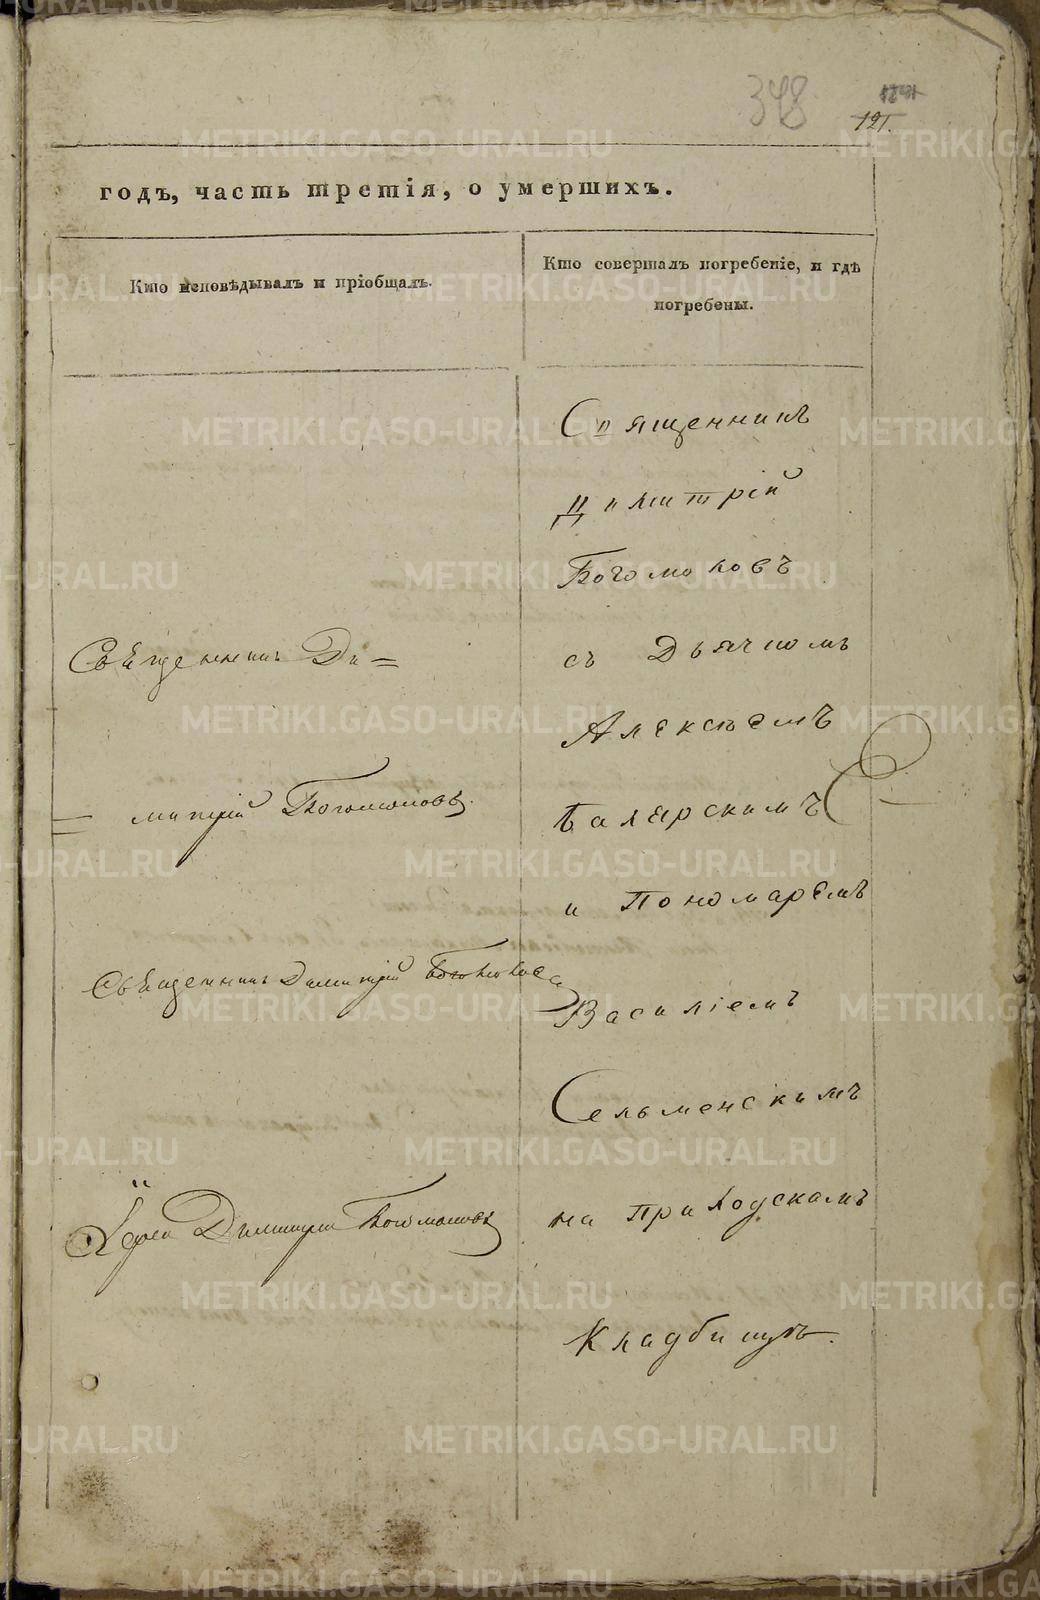 348
121.
годъ, часть третія, о умершихъ.
Кто исповѣдывалъ и пріобщалъ.
Кто совершалъ погребеніе, и гдѣ
погребены.
Священникъ Ди=
=митрій Богомоловъ.
Священникъ Димитрій Богомоловъ
Іерей Димитрій Богомоловъ
Священникъ
Димитрій
Богомоловъ
съ Дьячкомъ
Алексѣемъ
и Пономаремъ
Василіемъ
Сельменскимъ
на Приходскомъ
Кладбищѣ.
METRIKI.GASO-URAL.RU